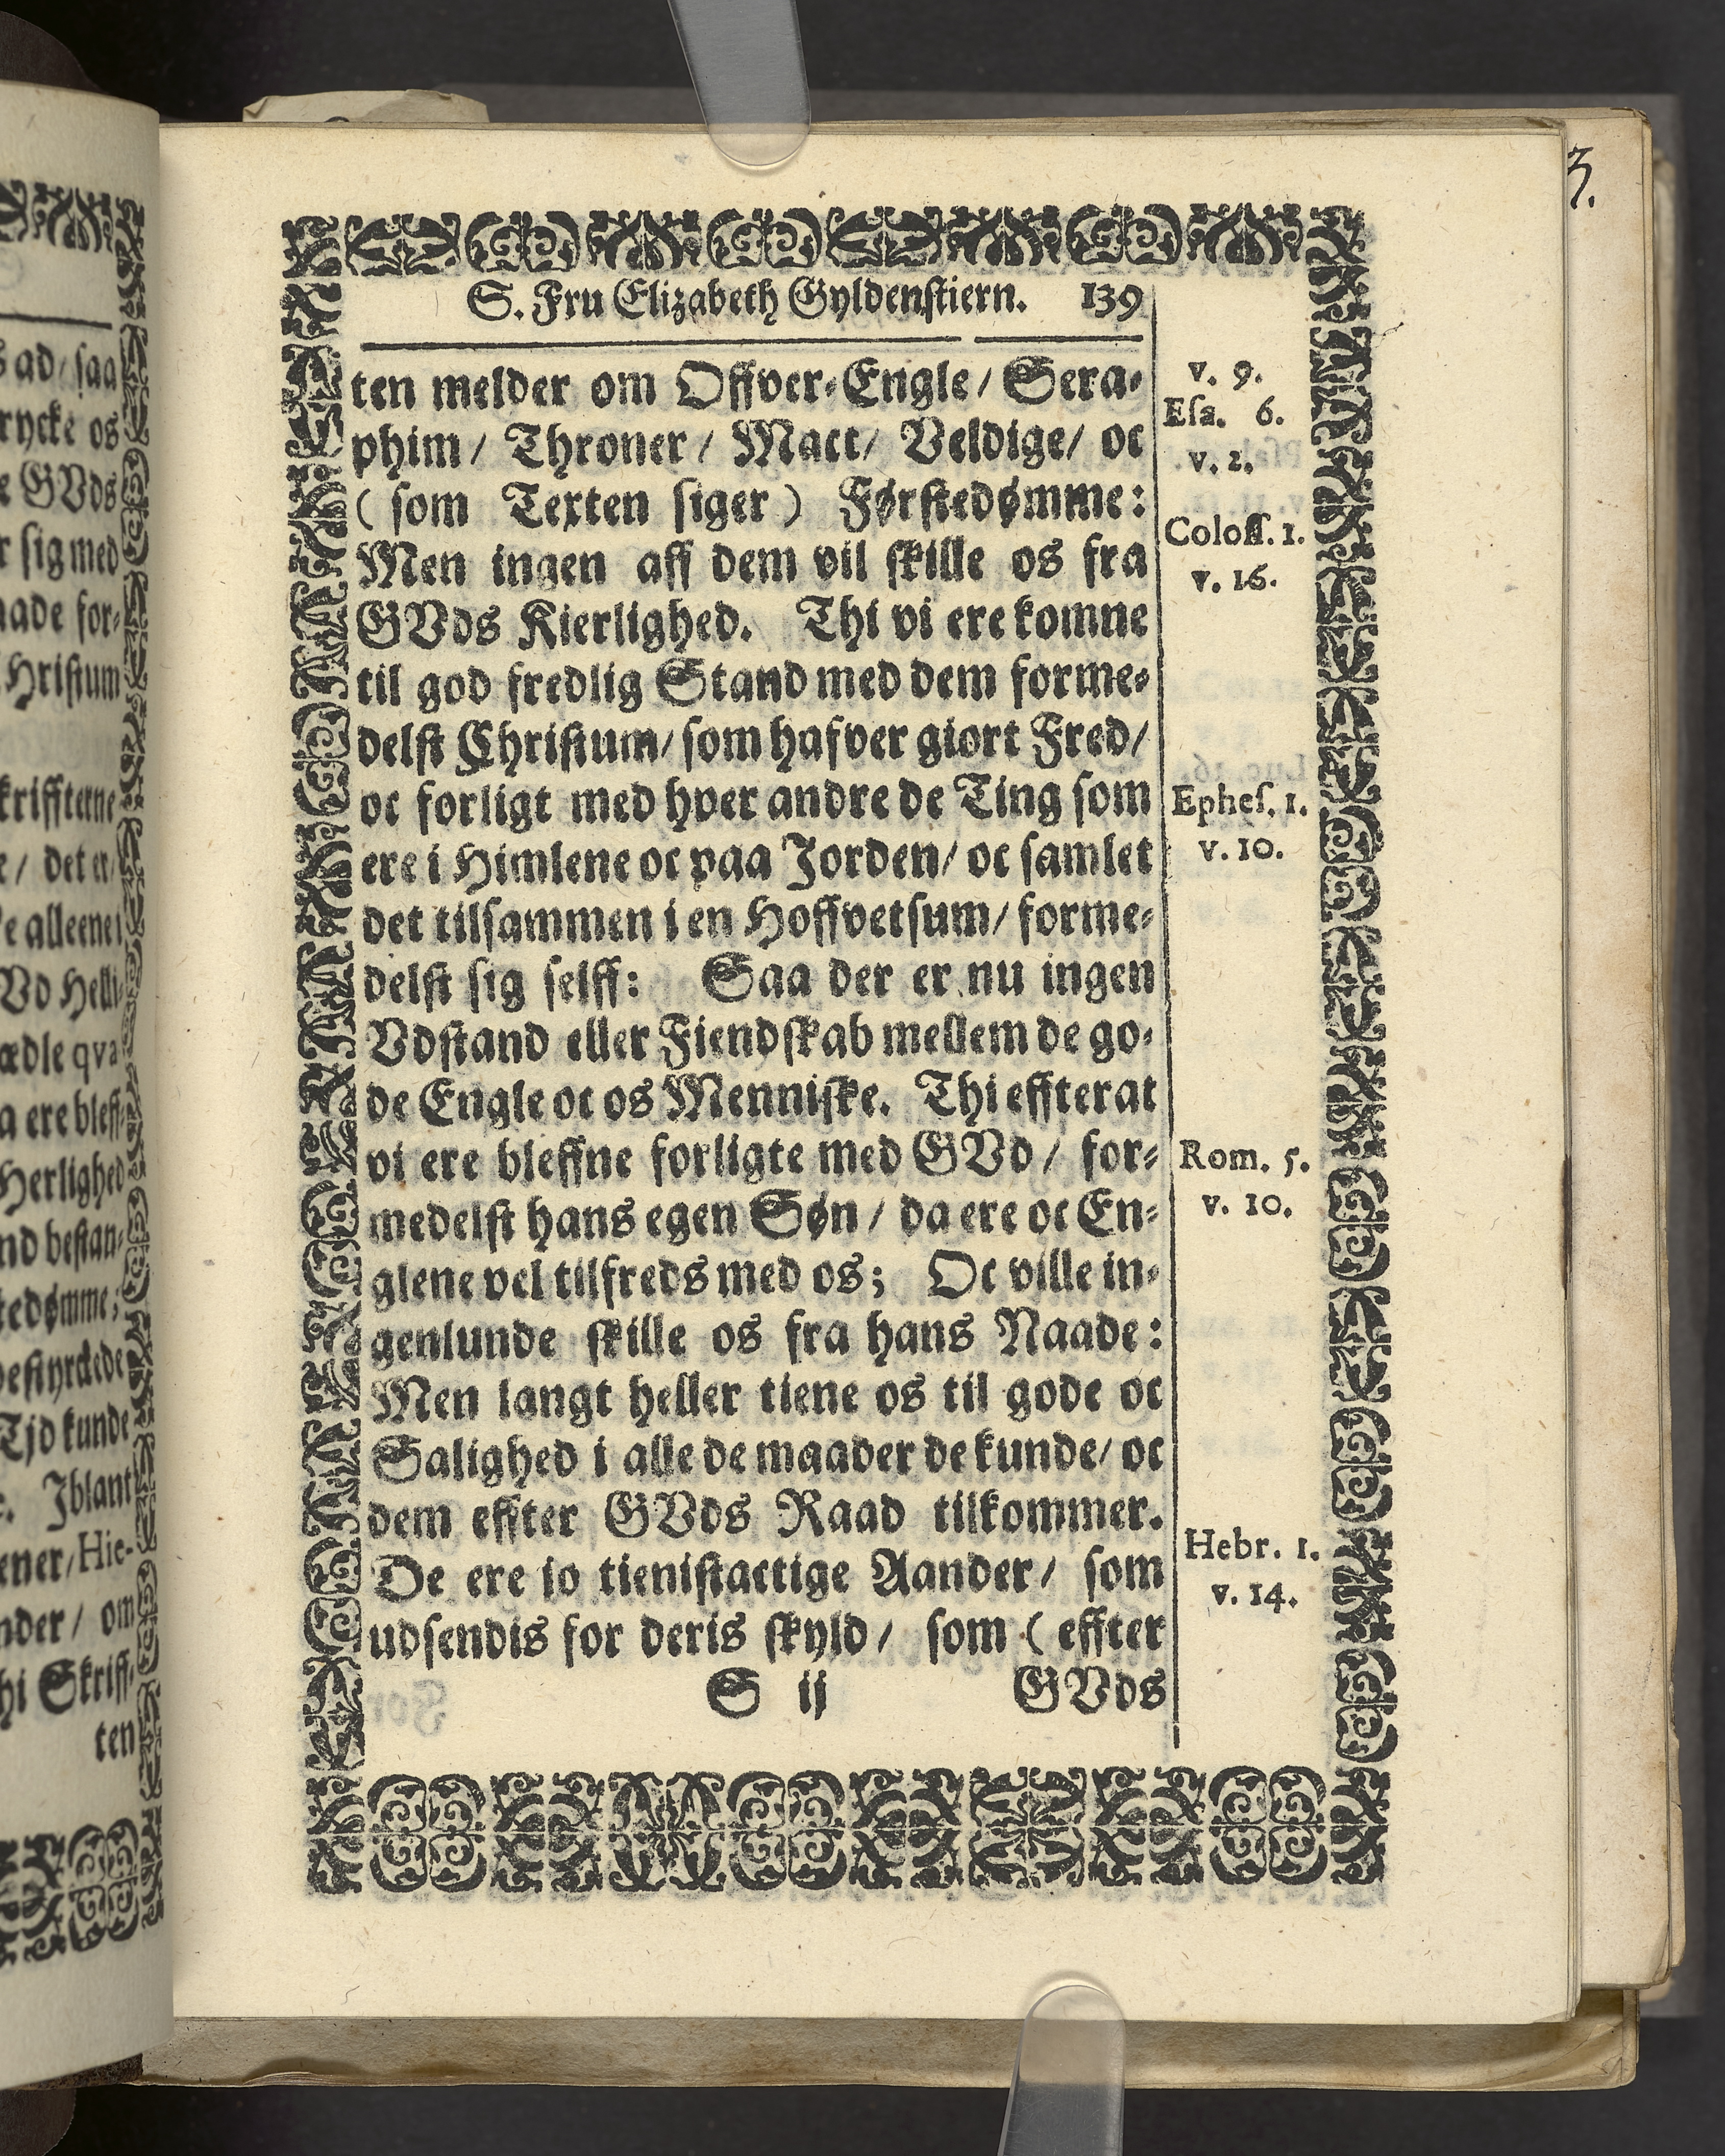 S. Fru Elizabeth Gyldenstiern. 139
ten melder om Offver-Engle/ Sera-
phim/ Throner/ Mact/ Veldige/ oc
(som Texten siger) Førstedømme:
Men ingen aff dem vil skille os fra
GVds Kierlighed. Thi vi ere komne
til god fredlig Stand med dem forme-
delst Christum/ som hafver giort Fred/
oc forligt med hver andre de Ting som
ere i Himlene oc paa Jorden/ oc samlet
det tilsammen i en Hoffvetsum/ forme-
delst sig selff: Saa der er nu ingen
Vdstand eller Fiendskab mellem de go-
de Engle oc os Menniske. Thi effterat
vi ere bleffne forligte med GVd/ for-
medelst hans egen Søn/ da ere oc En-
glene vel tilfreds med os; Oc ville in-
genlunde skille os fra hans Naade:
Men langt heller tiene os til gode oc
Salighed i alle de maader de kunde/ oc
dem effter GVds Raad tilkommer.
De ere jo tienistactige Aander/ som
udsendis for deris skyld/ som (effter
S ij GVds
v. 9.
Esa. 6.
v. 2.
Coloss. 1.
v. 16.
Ephes. 1.
v. 10.
Rom. 5.
v. 10.
Hebr. 1.
v. 14.
ad/ saa
rycke os
GVds
sig med
aade for-
Hristum
kriffterne
/ det er/
alleene i
Vd Helli-
ædle qva
ere bleff-
Herlighed
nd bestan-
tedømme;
bestyrckede
Tjd kunde
Jblant
ener/ Hie-
nder/ om
hi Skriff-
ten
3.